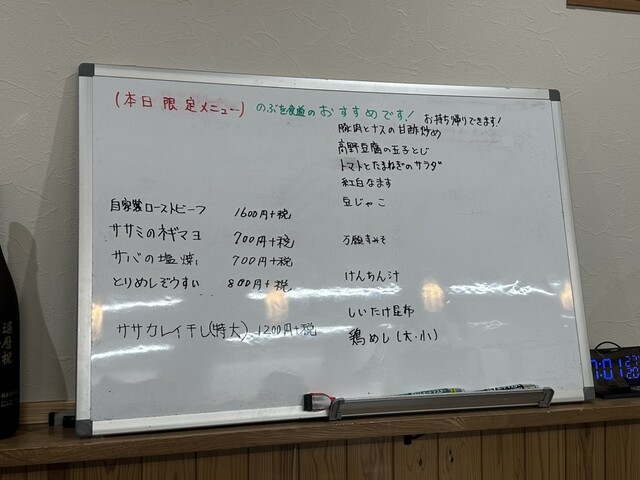 (本日限定メニュー) のぶを食道のおすすめです! お持ち帰りできます!
豚肉とナスの甘酢炒め
高野豆腐の玉子とじ
トマトとたまねぎのサラダ
紅白なます
自家製ローストビーフ 1600円+税
豆じゃこ
ササミのネギマヨ 700円+税
万願すみそ
サバの塩焼 700円+税
けんちん汁
とりめしぞうすい 800円+税
しいたけ昆布
ササカレイ干し(特大) 1200円+税
鶏めし(大・小)
還暦祝
7:01